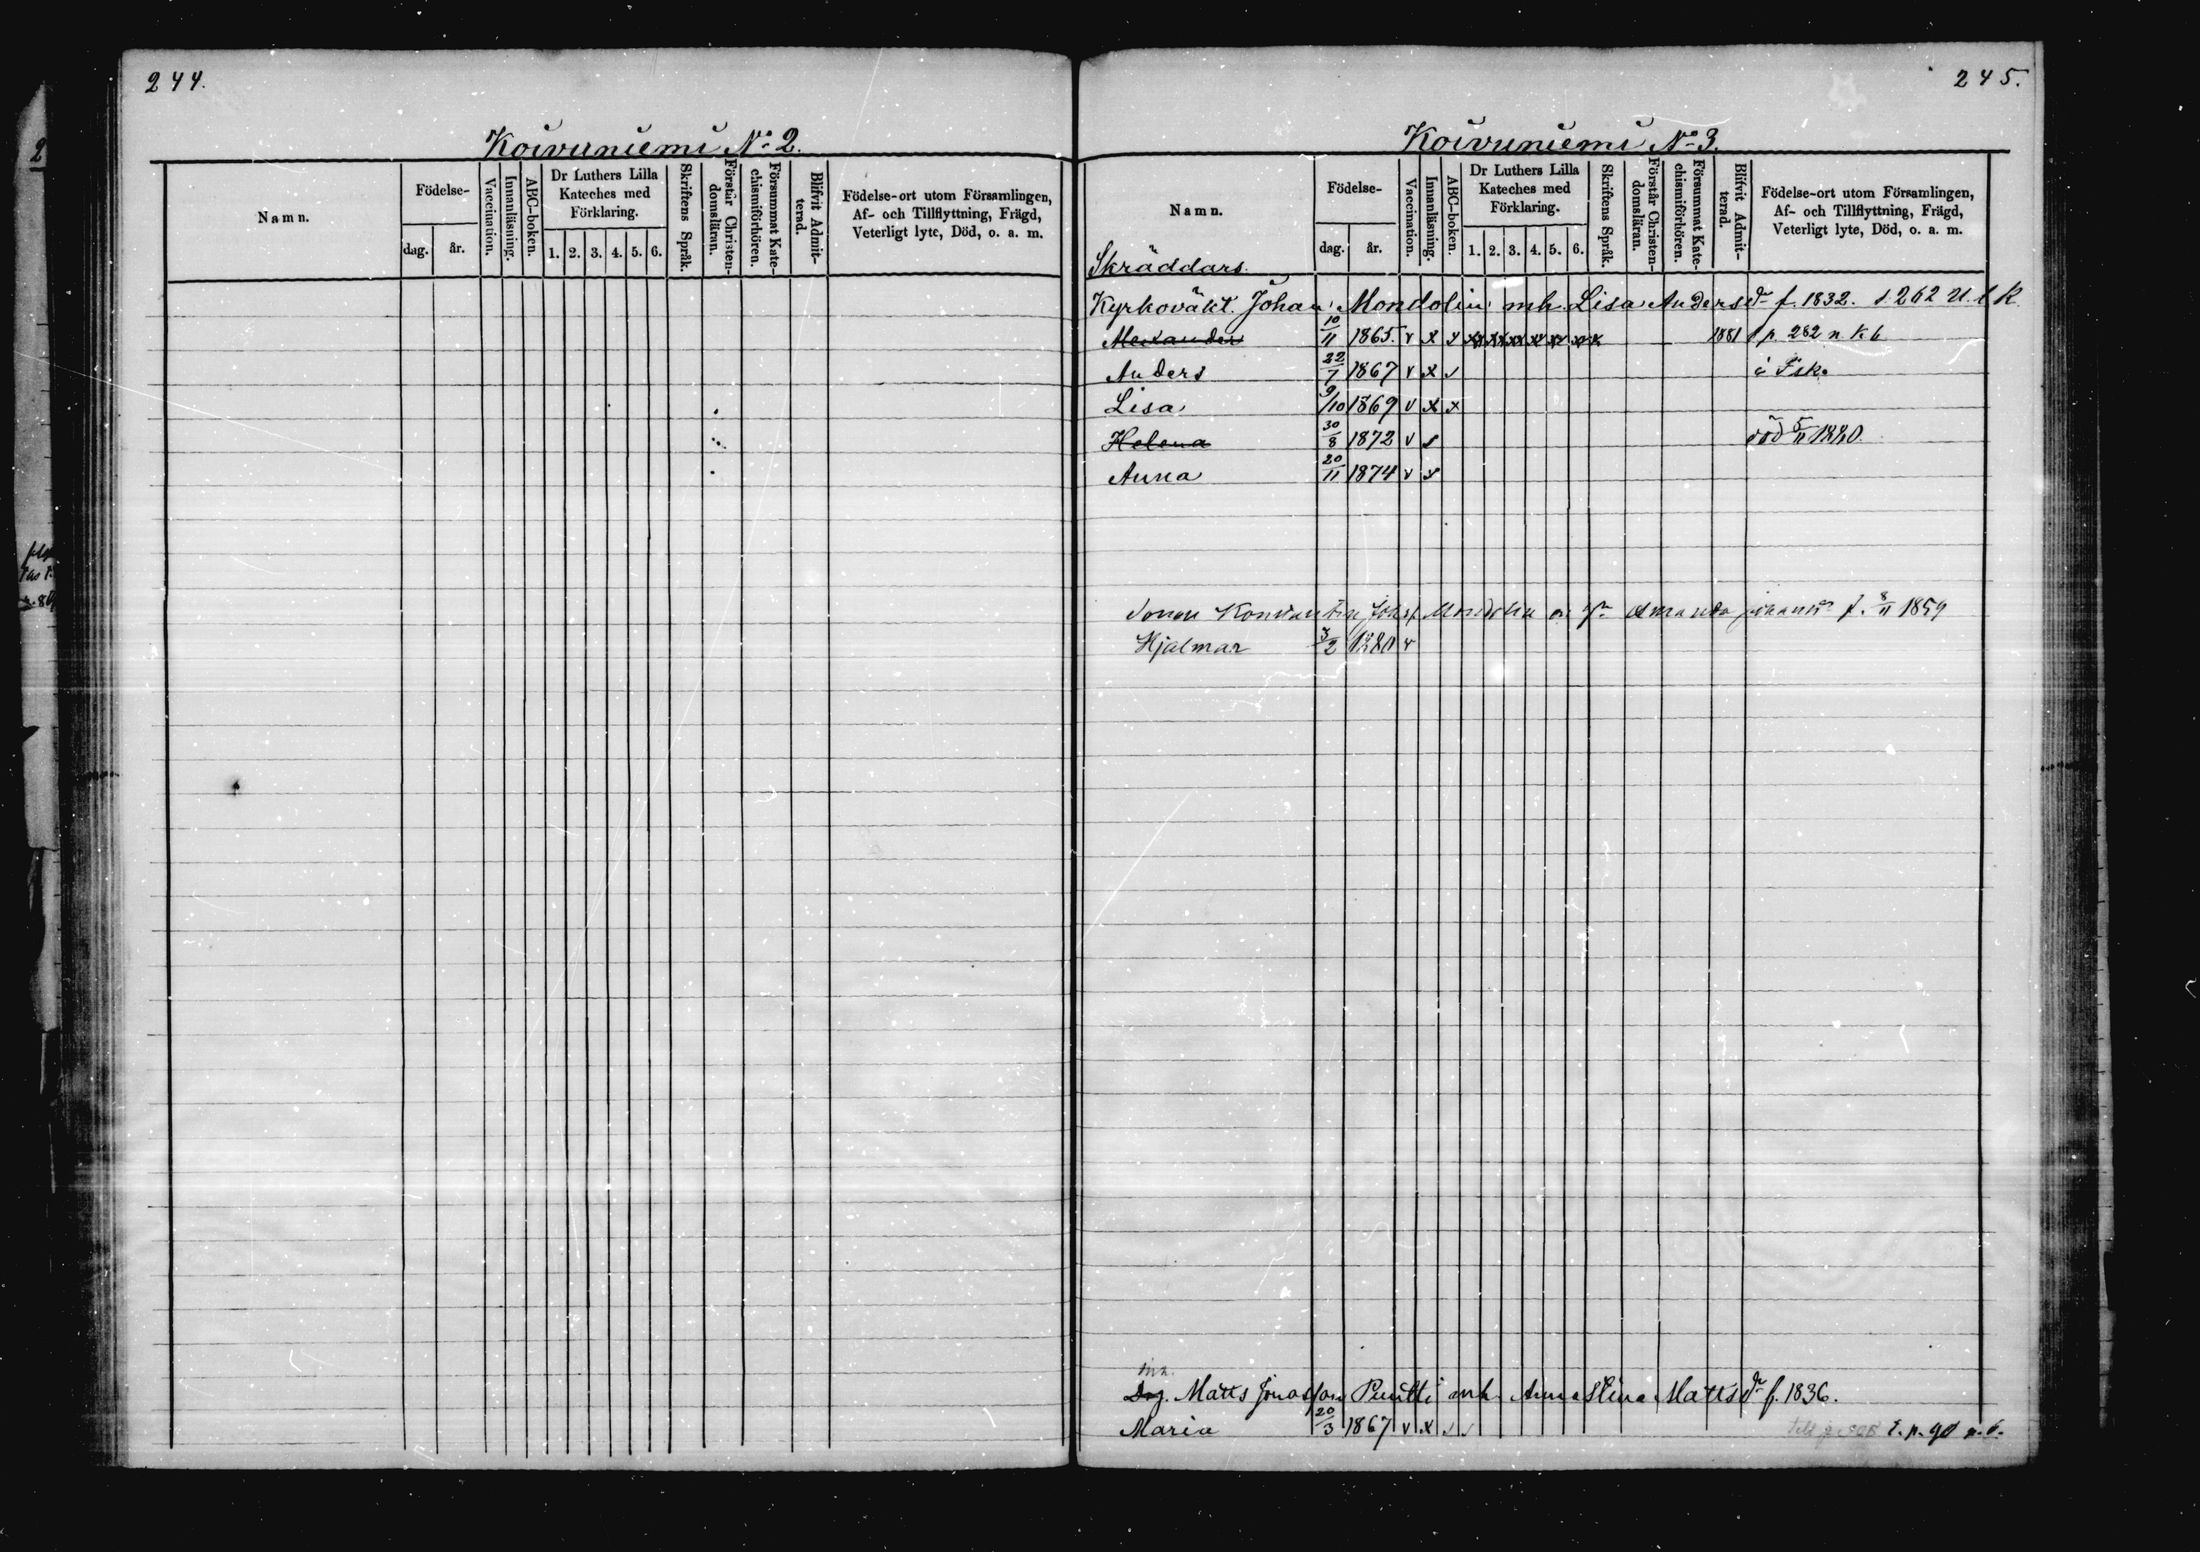 244.
Koivuniemi No 2.
Namn.
Födelse-
dag.
år.
Vaccination.
Innanläsning.
ABC-boken.
Dr Luthers Lilla
Kateches med
Förklaring.
1. 2. 3. 4. 5. 6.
Skriftens Språk.
Förstår Christen-
domsläran.
Försummat Kate-
chismiförhören.
Blifvit Admit-
terad.
Födelse-ort utom Församlingen,
Af- och Tillflyttning, Frägd,
Veterligt lyte, Död, o. a. m.
245.
Koivuniemi No 3.
Namn.
Födelse-
dag.
år.
Vaccination.
Innanläsning.
ABC-boken.
Dr Luthers Lilla
Kateches med
Förklaring.
1. 2. 3. 4. 5. 6.
Skriftens Språk.
Förstår Christen-
domsläran.
Försummat Kate-
chismiförhören.
Blifvit Admit-
terad.
Födelse-ort utom Församlingen,
Af- och Tillflyttning, Frägd,
Veterligt lyte, Död, o. a. m.
Skräddars.
Kyrkovakt. Johan Mondolin mh. Lisa Andersdr f. 1832. s. 262 U. t K
Alexander 10/11 1865. v x x 1881 p. 282 n. k. b
Anders 22/7 1867 v x
Lisa 9/10 1869 v x x
Helena 30/8 1872 v död 5/11 1880.
Anna 20/11 1874 v
Sonen Konstantin Johsf Mondolin o. Amanda f. 8/11 1859
Hjalmar 3/2 1880 v
inh.
Drg. Matts Jonasson Puutti mh. Anna Stina Mattsdr f. 1836.
Maria 20/3 1867 v x t. p. 90 n. b.